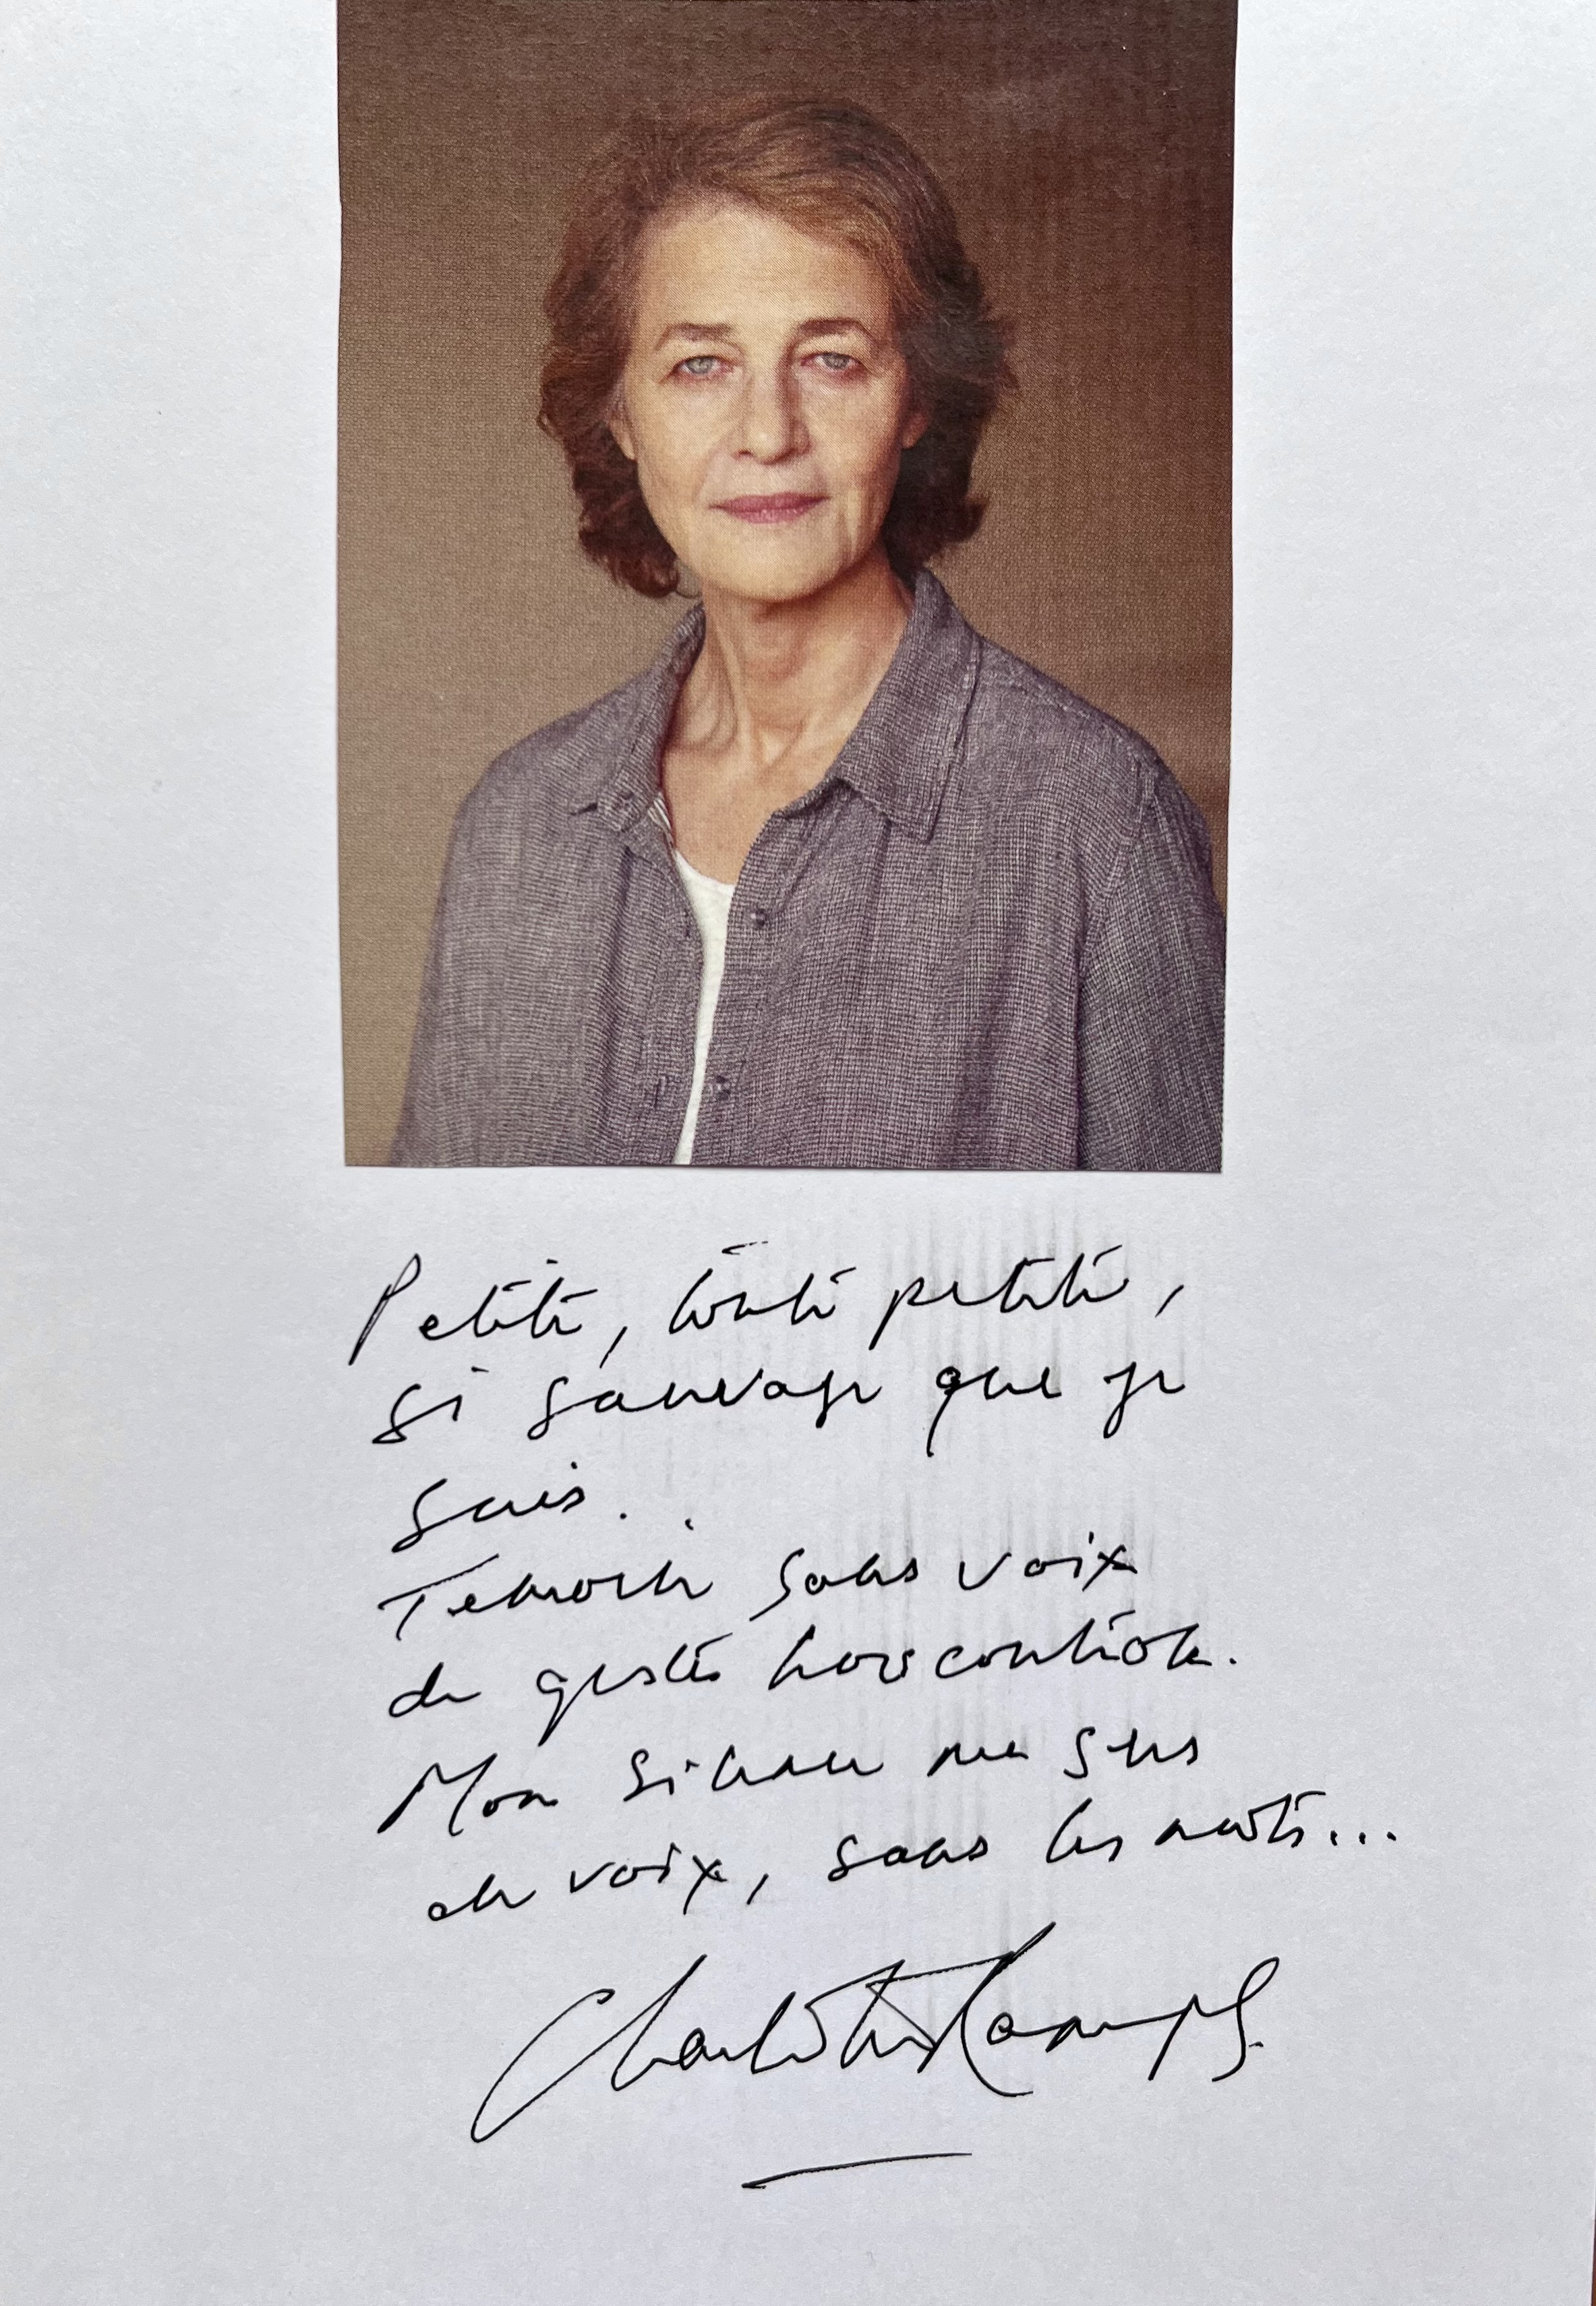 Petite, toute petite,
si sauvage que je
suis.
Temoin sans voix
de gestes hors controle.
Mon silence me sers
de voix, sans les mots...
Charlotte Rampling